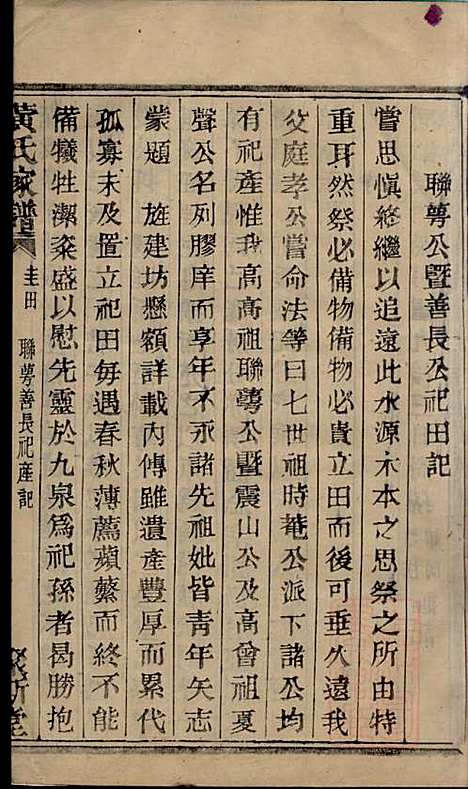 聯萼公暨善長公祀田記
嘗思愼終繼以追遠此水源木本之思祭之所由特
重耳然祭必備物備物必貴立田而後可垂久遠我
父庭孝公嘗命法等曰七世祖時菴公派下諸公均
有祀產惟我高高祖聯萼公暨震山公及高曾祖夏
聲公名列膠庠而享年不永諸先祖妣皆靑年矢志
蒙題 旌建坊懸額詳載內傳雖遺產豐厚而累代
孤寡未及置立祀田每遇春秋薄薦蘋蘩而終不能
備犧牲潔粢盛以慰先靈於九泉爲祀孫者曷勝抱
黃氏家譜 圭田 聯萼善長祀產記